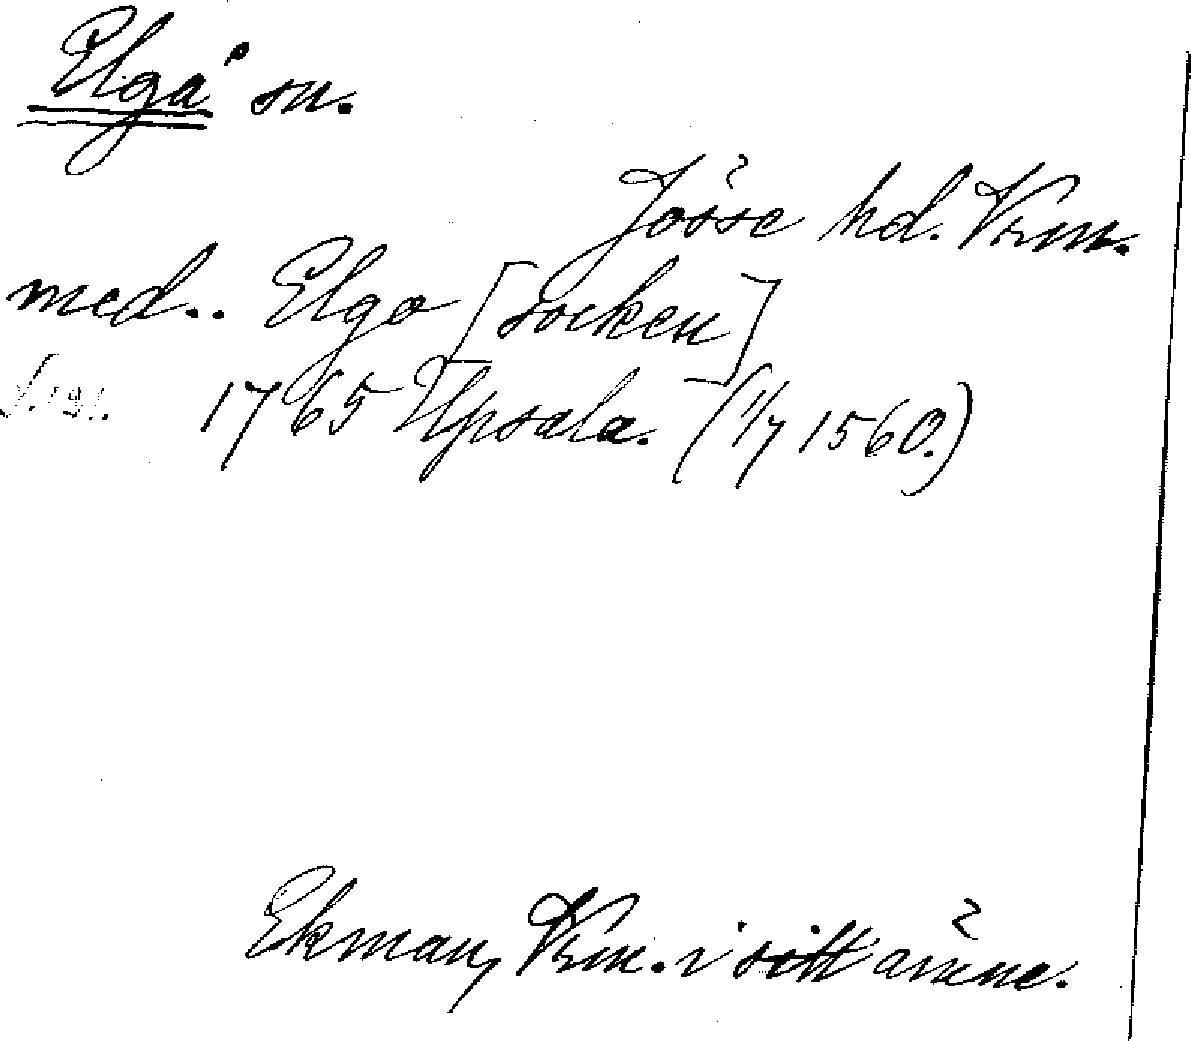 Elgå sn.
Jösse hd. Vrm.
med.. Elgo [socken]
1765 Upsala. (1/7 1560.)
Ekman, Vrm. i sitt ämne.